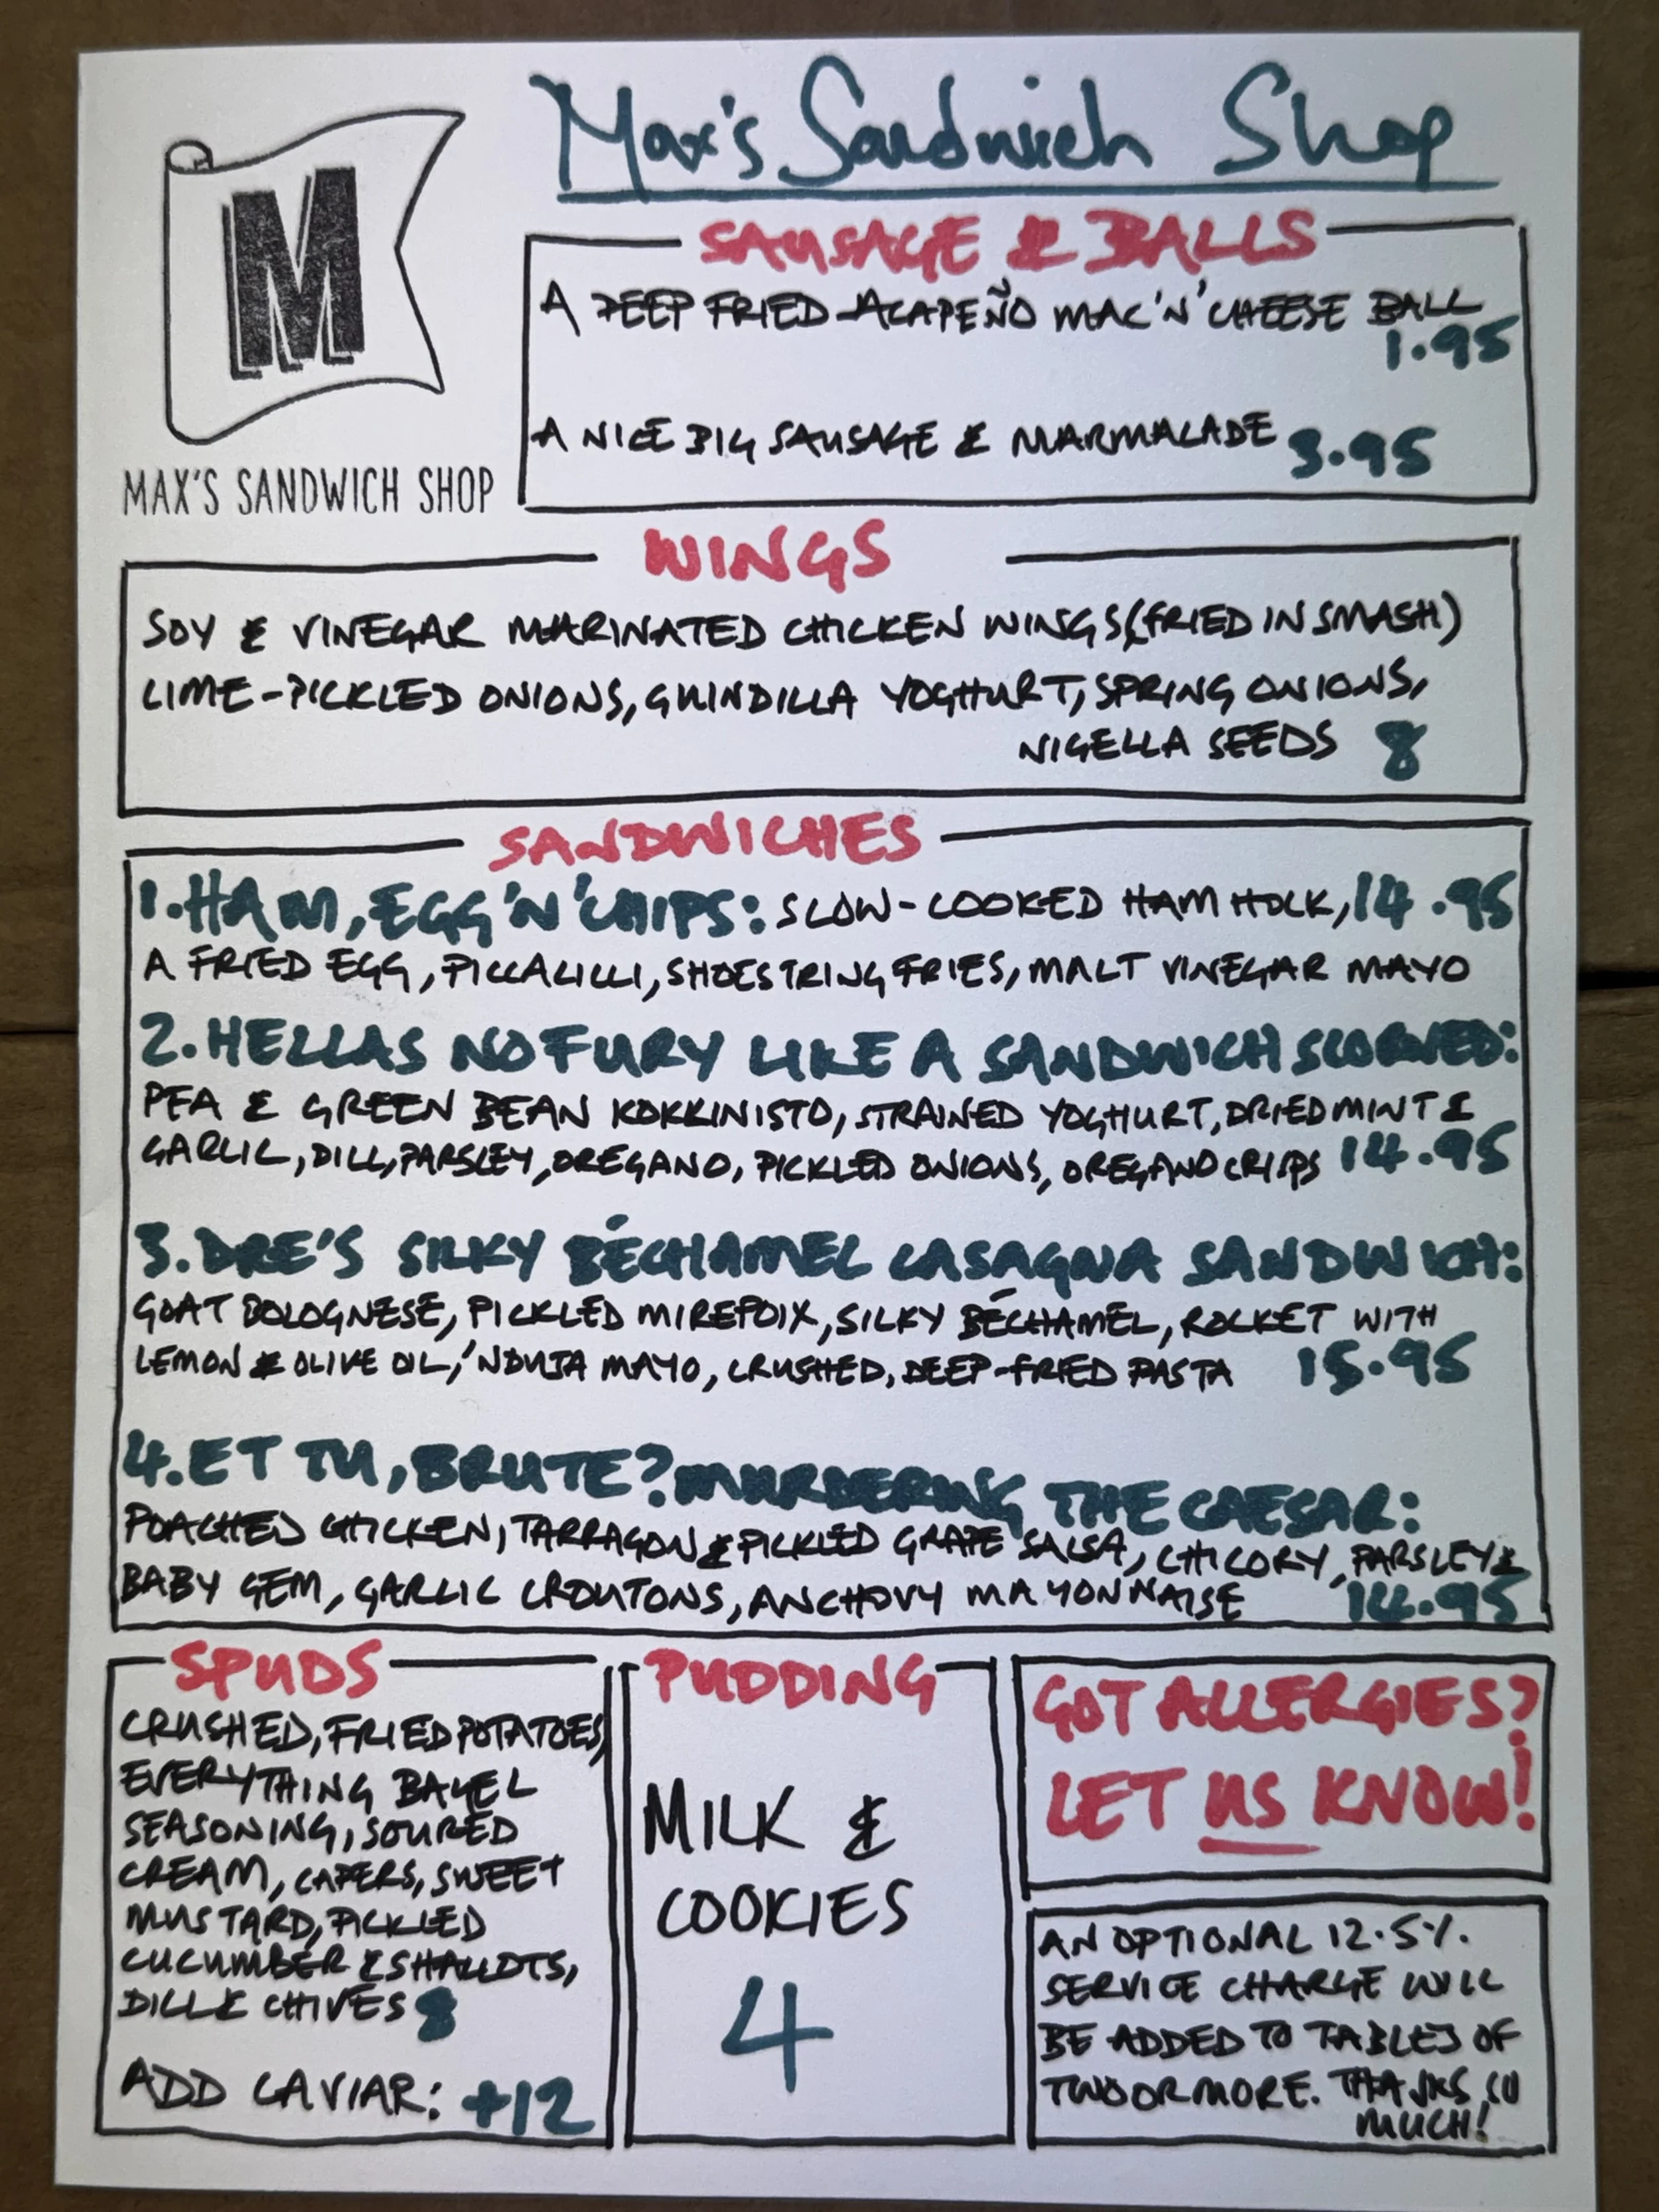 Max's Sandwich Shop
M
MAX'S SANDWICH SHOP
SAUSAGE & BALLS
A DEEP FRIED JALAPEÑO MAC'N'CHEESE BALL
1.95
A NICE BIG SAUSAGE & MARMALADE 3.95
WINGS
SOY & VINEGAR MARINATED CHICKEN WINGS (FRIED IN SMASH)
LIME-PICKLED ONIONS, GUINDILLA YOGHURT, SPRING ONIONS,
NIGELLA SEEDS 8
SANDWICHES
1. HAM, EGG 'N' CHIPS: SLOW-COOKED HAM HOCK, 14.95
A FRIED EGG, PICCALILLI, SHOESTRING FRIES, MALT VINEGAR MAYO
2. HELLAS NO FURY LIKE A SANDWICH SCORNED:
PEA & GREEN BEAN KOKKINISTO, STRAINED YOGHURT, DRIED MINT &
GARLIC, DILL, PARSLEY, OREGANO, PICKLED ONIONS, OREGANO CRISPS 14.95
3. DRE'S SILKY BÉCHAMEL LASAGNA SANDWICH:
GOAT BOLOGNESE, PICKLED MIREPOIX, SILKY BÉCHAMEL, ROCKET WITH
LEMON & OLIVE OIL, 'NDUJA MAYO, CRUSHED, DEEP-FRIED PASTA 15.95
4. ET TU, BRUTE? MURDERING THE CAESAR:
POACHED CHICKEN, TARRAGON & PICKLED GRAPE SALSA, CHICORY, PARSLEY &
BABY GEM, GARLIC CROUTONS, ANCHOVY MAYONNAISE 14.95
SPUDS
CRUSHED, FRIED POTATOES,
EVERYTHING BAGEL
SEASONING, SOURED
CREAM, CAPERS, SWEET
MUSTARD, PICKLED
CUCUMBER & SHALLOTS,
DILL & CHIVES 8
ADD CAVIAR: +12
PUDDING
MILK &
COOKIES
4
GOT ALLERGIES?
LET US KNOW!
AN OPTIONAL 12.5%
SERVICE CHARGE WILL
BE ADDED TO TABLES OF
TWO OR MORE. THANKS SO
MUCH!